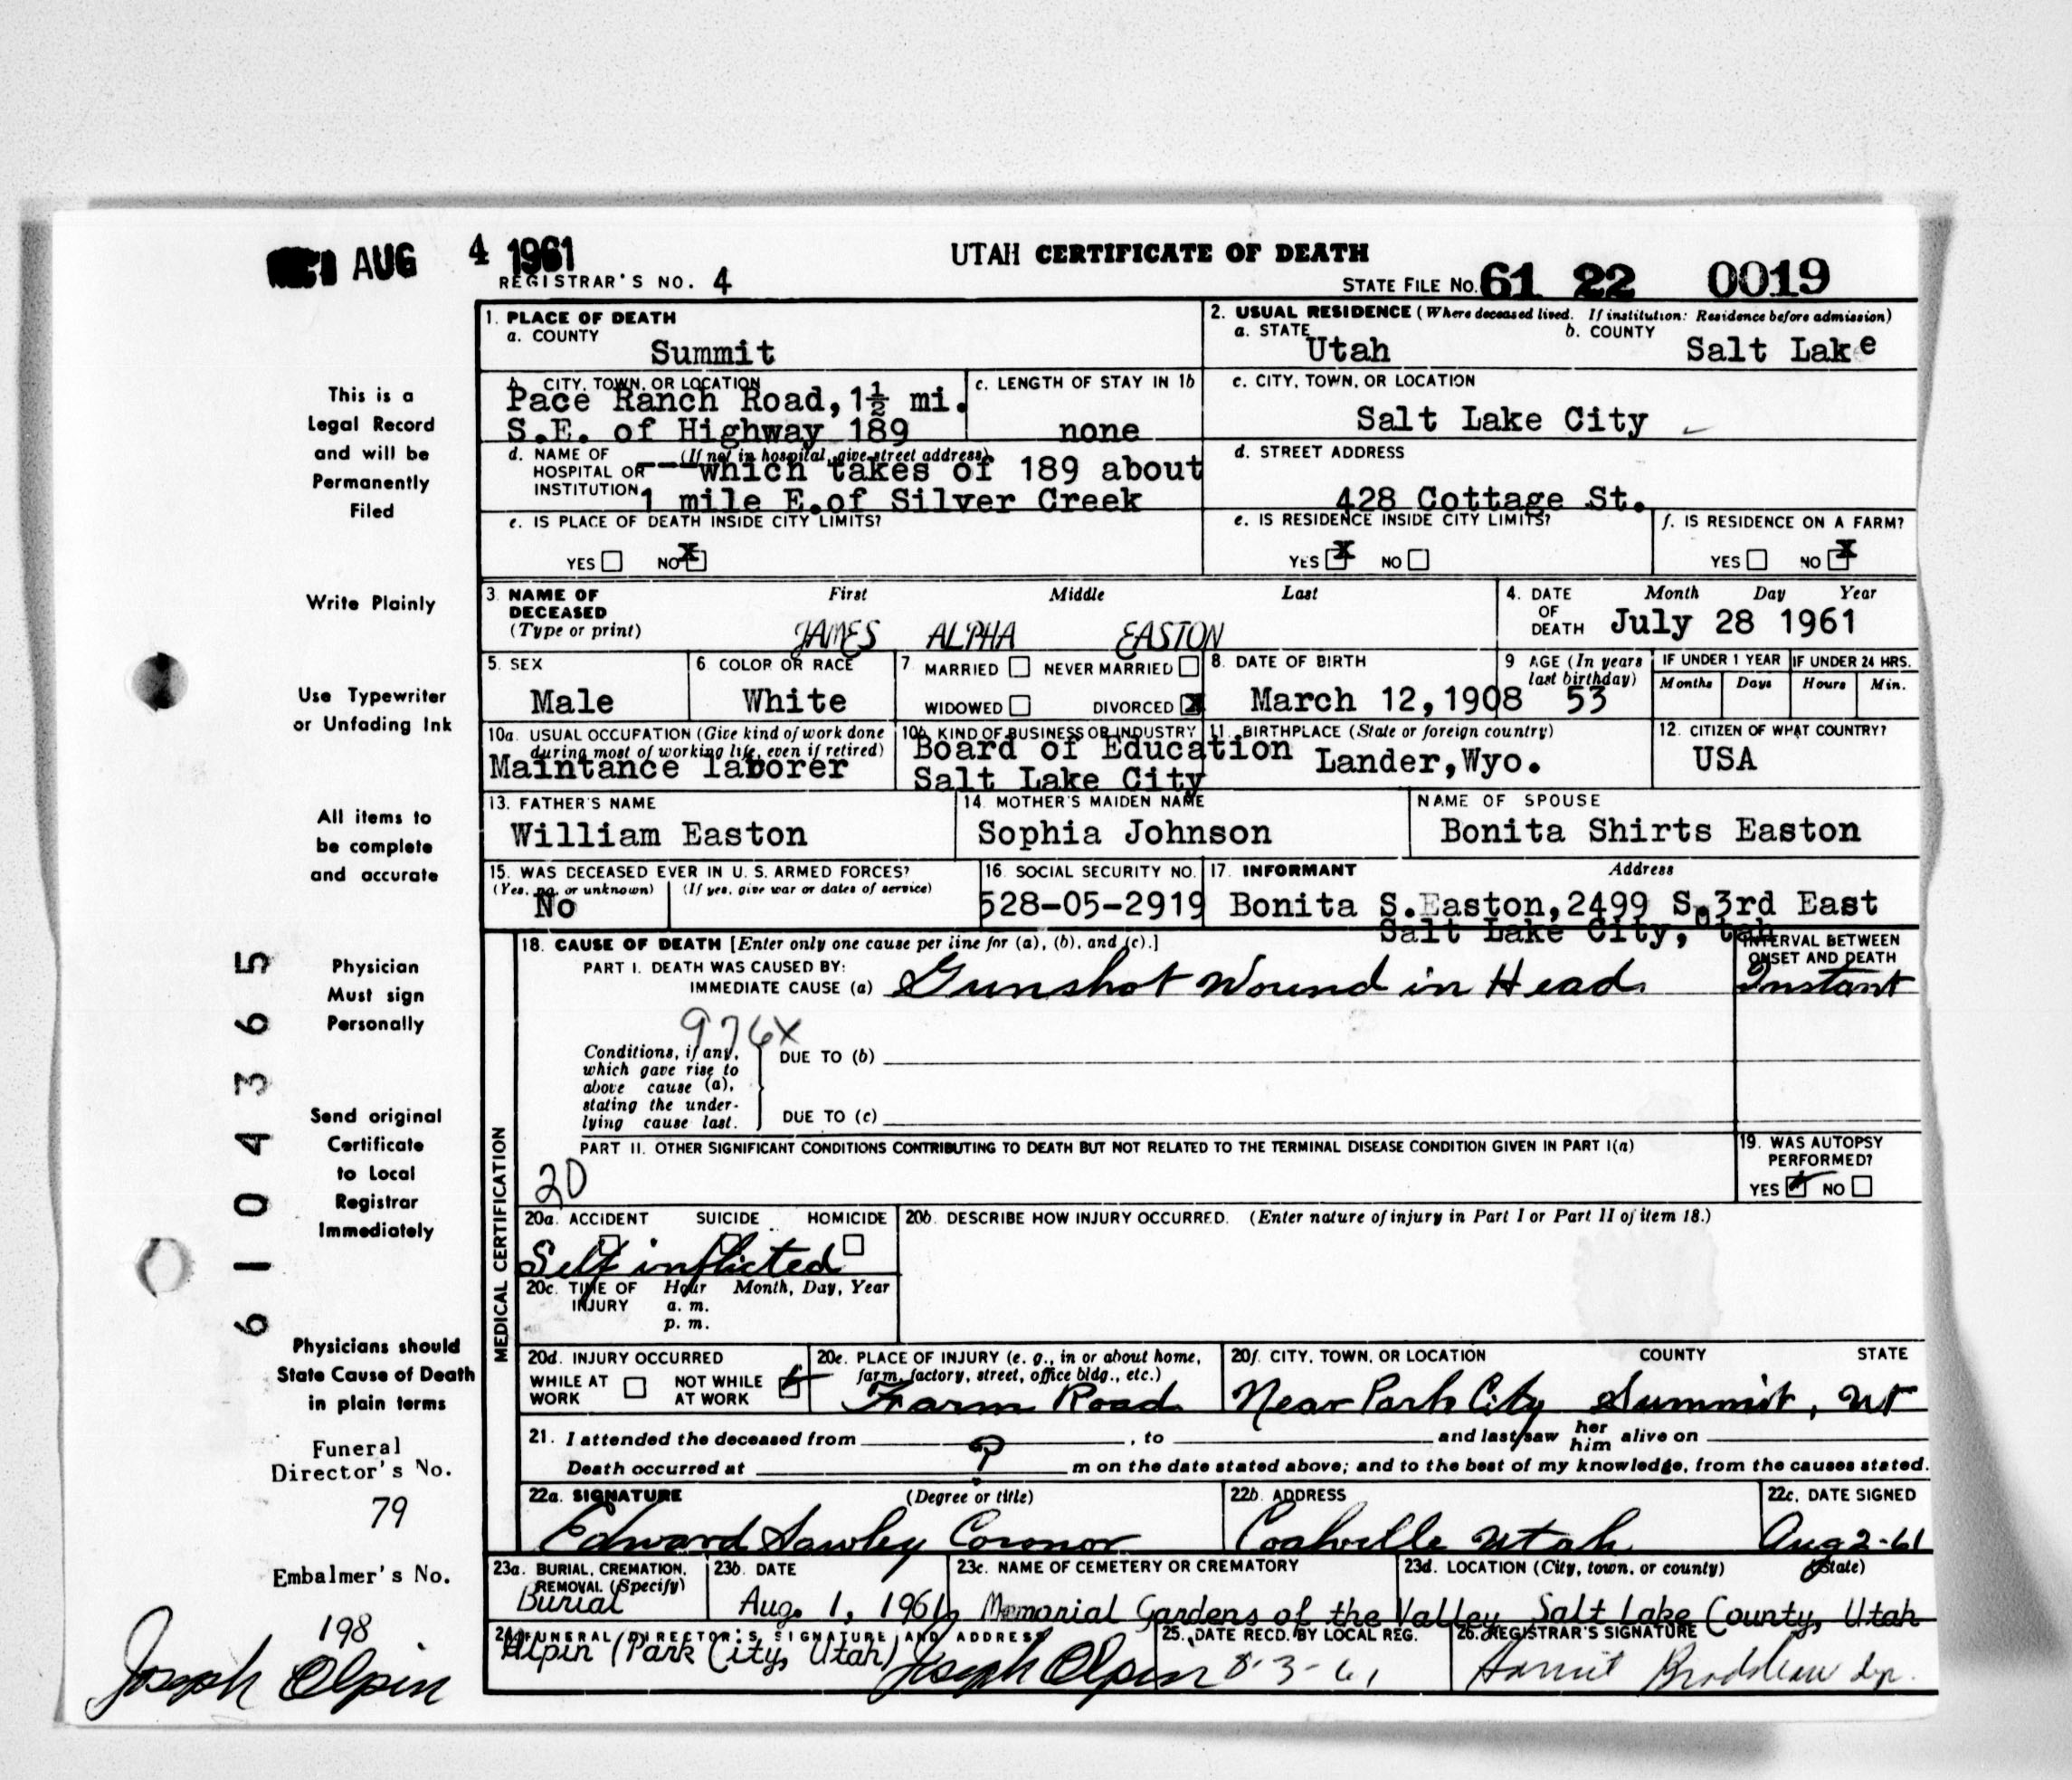 AUG 4 1961
UTAH CERTIFICATE OF DEATH
REGISTRAR'S NO. 4
STATE FILE NO. 61 22 0019
1. PLACE OF DEATH
a. COUNTY
Summit
2. USUAL RESIDENCE (Where deceased lived. If institution: Residence before admission)
a. STATE
Utah
b. COUNTY
Salt Lake
b. CITY, TOWN, OR LOCATION
Pace Ranch Road, 1½ mi.
S.E. of Highway 189
c. LENGTH OF STAY IN 1b
none
c. CITY, TOWN, OR LOCATION
Salt Lake City
d. NAME OF HOSPITAL OR INSTITUTION
(If not in hospital, give street address)
---which takes of 189 about
1 mile E.of Silver Creek
d. STREET ADDRESS
428 Cottage St.
e. IS PLACE OF DEATH INSIDE CITY LIMITS?
YES NO X
e. IS RESIDENCE INSIDE CITY LIMITS?
YES X NO
f. IS RESIDENCE ON A FARM?
YES NO X
3. NAME OF DECEASED
(Type or print)
First Middle Last
JAMES ALPHA EASTON
4. DATE OF DEATH
Month Day Year
July 28 1961
5. SEX
Male
6. COLOR OR RACE
White
7. MARRIED NEVER MARRIED
WIDOWED DIVORCED X
8. DATE OF BIRTH
March 12,1908
9 AGE (In years last birthday)
53
IF UNDER 1 YEAR
Months Days
IF UNDER 24 HRS.
Hours Min.
10a. USUAL OCCUPATION (Give kind of work done during most of working life, even if retired)
Maintance laborer
10b. KIND OF BUSINESS OR INDUSTRY
Board of Education
Salt Lake City
11. BIRTHPLACE (State or foreign country)
Lander,Wyo.
12. CITIZEN OF WHAT COUNTRY?
USA
13. FATHER'S NAME
William Easton
14. MOTHER'S MAIDEN NAME
Sophia Johnson
NAME OF SPOUSE
Bonita Shirts Easton
15. WAS DECEASED EVER IN U. S. ARMED FORCES?
(Yes, no, or unknown) (If yes, give war or dates of service)
No
16. SOCIAL SECURITY NO.
528-05-2919
17. INFORMANT Address
Bonita S.Easton,2499 S.3rd East
Salt Lake City, Utah
18. CAUSE OF DEATH [Enter only one cause per line for (a), (b), and (c).]
PART I. DEATH WAS CAUSED BY:
IMMEDIATE CAUSE (a) Gunshot Wound in Head
INTERVAL BETWEEN ONSET AND DEATH
Instant
976X
Conditions, if any, which gave rise to above cause (a), stating the underlying cause last.
DUE TO (b)
DUE TO (c)
PART II. OTHER SIGNIFICANT CONDITIONS CONTRIBUTING TO DEATH BUT NOT RELATED TO THE TERMINAL DISEASE CONDITION GIVEN IN PART I(a)
20
19. WAS AUTOPSY PERFORMED?
YES NO
20a. ACCIDENT SUICIDE HOMICIDE
Self inflicted
20b. DESCRIBE HOW INJURY OCCURRED. (Enter nature of injury in Part I or Part II of item 18.)
20c. TIME OF INJURY
Hour Month, Day, Year
a. m.
p. m.
20d. INJURY OCCURRED
WHILE AT WORK NOT WHILE AT WORK
20e. PLACE OF INJURY (e. g., in or about home, farm, factory, street, office bldg., etc.)
Farm Road
20f. CITY, TOWN, OR LOCATION COUNTY STATE
Near Park City Summit, UT
21. I attended the deceased from , to and last saw her him alive on
?
Death occurred at m on the date stated above; and to the best of my knowledge, from the causes stated.
22a. SIGNATURE (Degree or title)
Edward Sawley Coronor
22b. ADDRESS
Coalville Utah
22c. DATE SIGNED
Aug 2-61
23a. BURIAL, CREMATION, REMOVAL (Specify)
Burial
23b. DATE
Aug. 1, 1961,
23c. NAME OF CEMETERY OR CREMATORY
Memorial Gardens of the Valley
23d. LOCATION (City, town, or county) (State)
Salt Lake County, Utah
24. FUNERAL DIRECTOR'S SIGNATURE AND ADDRESS
Olpin (Park City, Utah) Joseph Olpin
25. DATE RECD. BY LOCAL REG.
8-3-61
26. REGISTRAR'S SIGNATURE
MEDICAL CERTIFICATION
This is a
Legal Record
and will be
Permanently
Filed
Write Plainly
Use Typewriter
or Unfading Ink
All items to
be complete
and accurate
Physician
Must sign
Personally
Send original
Certificate
to Local
Registrar
Immediately
Physicians should
State Cause of Death
in plain terms
Funeral
Director's No.
79
Embalmer's No.
198
Joseph Olpin
61043 65